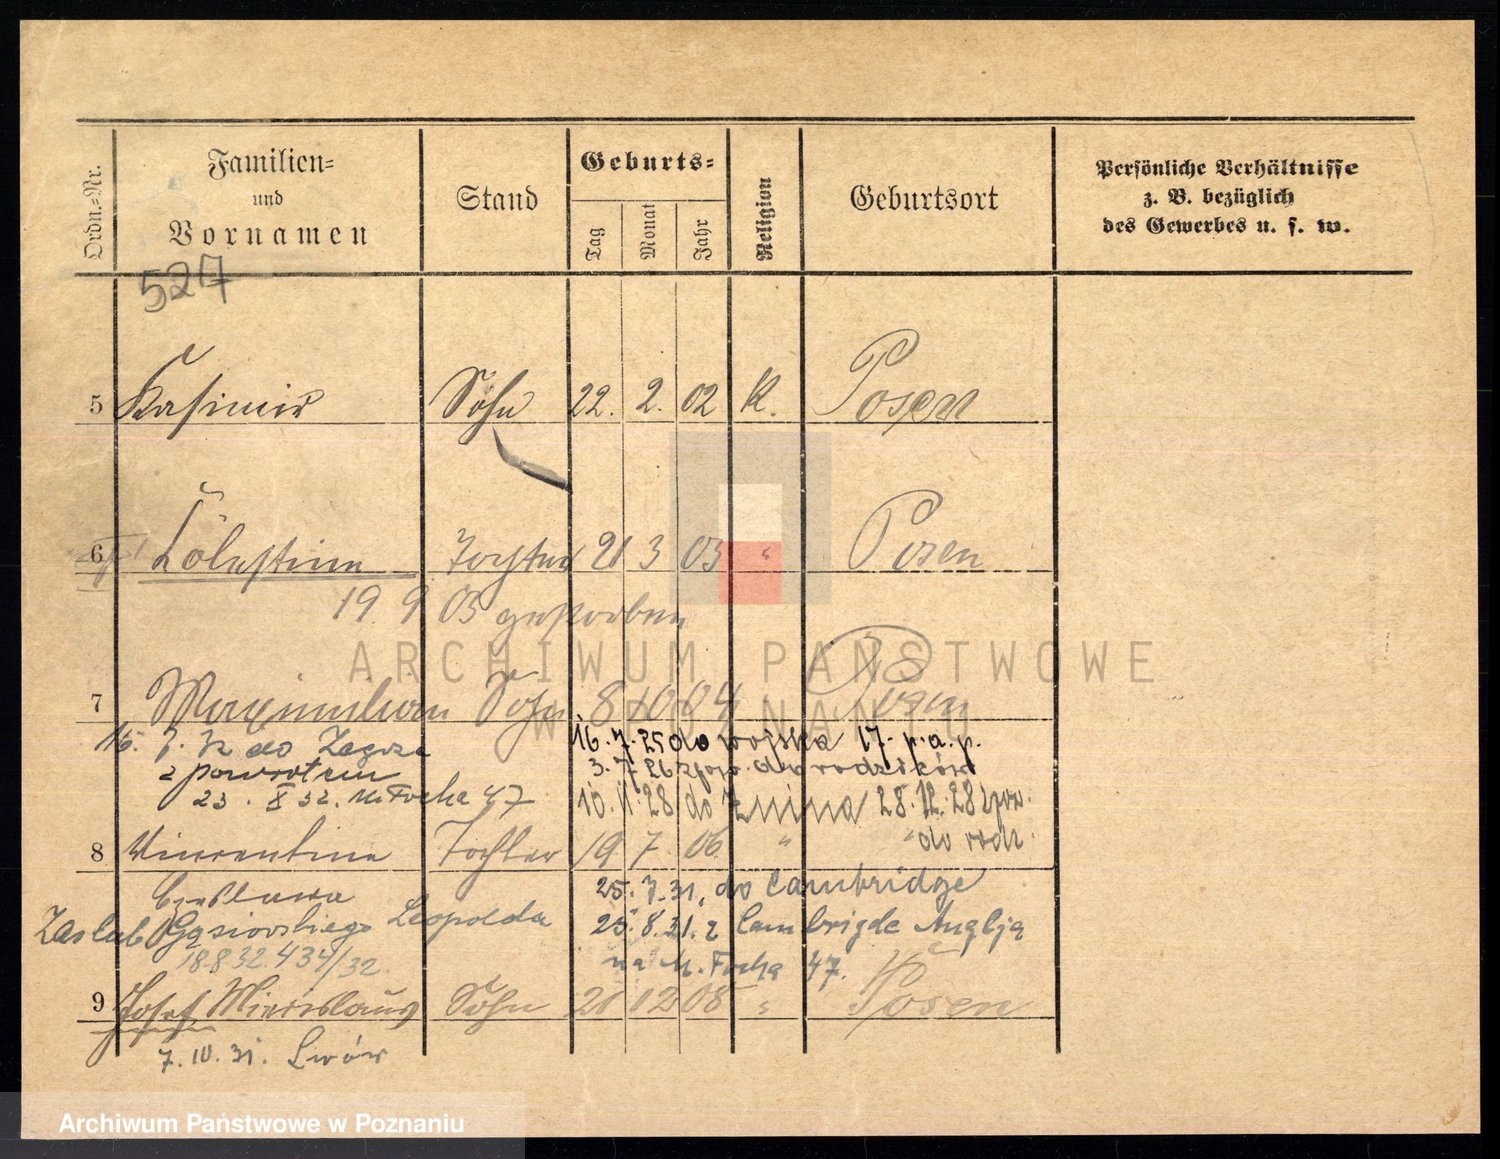 Ordn.-Nr.
Familien-
und
Vornamen
Stand
Geburts-
Tag
Monat
Jahr
Religion
Geburtsort
Persönliche Verhältnisse
z. B. bezüglich
des Gewerbes u. s. w.
527
5 Kasimir Sohn 22. 2. 02 K. Posen
6 Cölestine Tochter 21 3 03 " Posen
19. 9 03 gestorben
7 Maximilian Sohn 8 10 04 Posen
16. 7. 32 do Zagórza
z powrotem
23. X 32. M. Focha 47
16. 7. 25 do wojska 17. p. a. p.
3. 7 26 zpow. do rodziców
10. 11. 28 do Żnina 28. 12. 28 zpow.
do rodz.
8 Vincentine Tochter 19 7. 06 " "
Czesława
Zaślub Gąsiowskiego Leopolda
18.8.32. 434/32
25. 7. 31, do Cambridge
25. 8. 31. z Cambrigde Anglją
na M. Focha 47.
9 Josef Miecislaus Sohn 21 12 08 " Posen
7. IV. 31. Lwów
ARCHIWUM PAŃSTWOWE
W POZNANIU
Archiwum Państwowe w Poznaniu